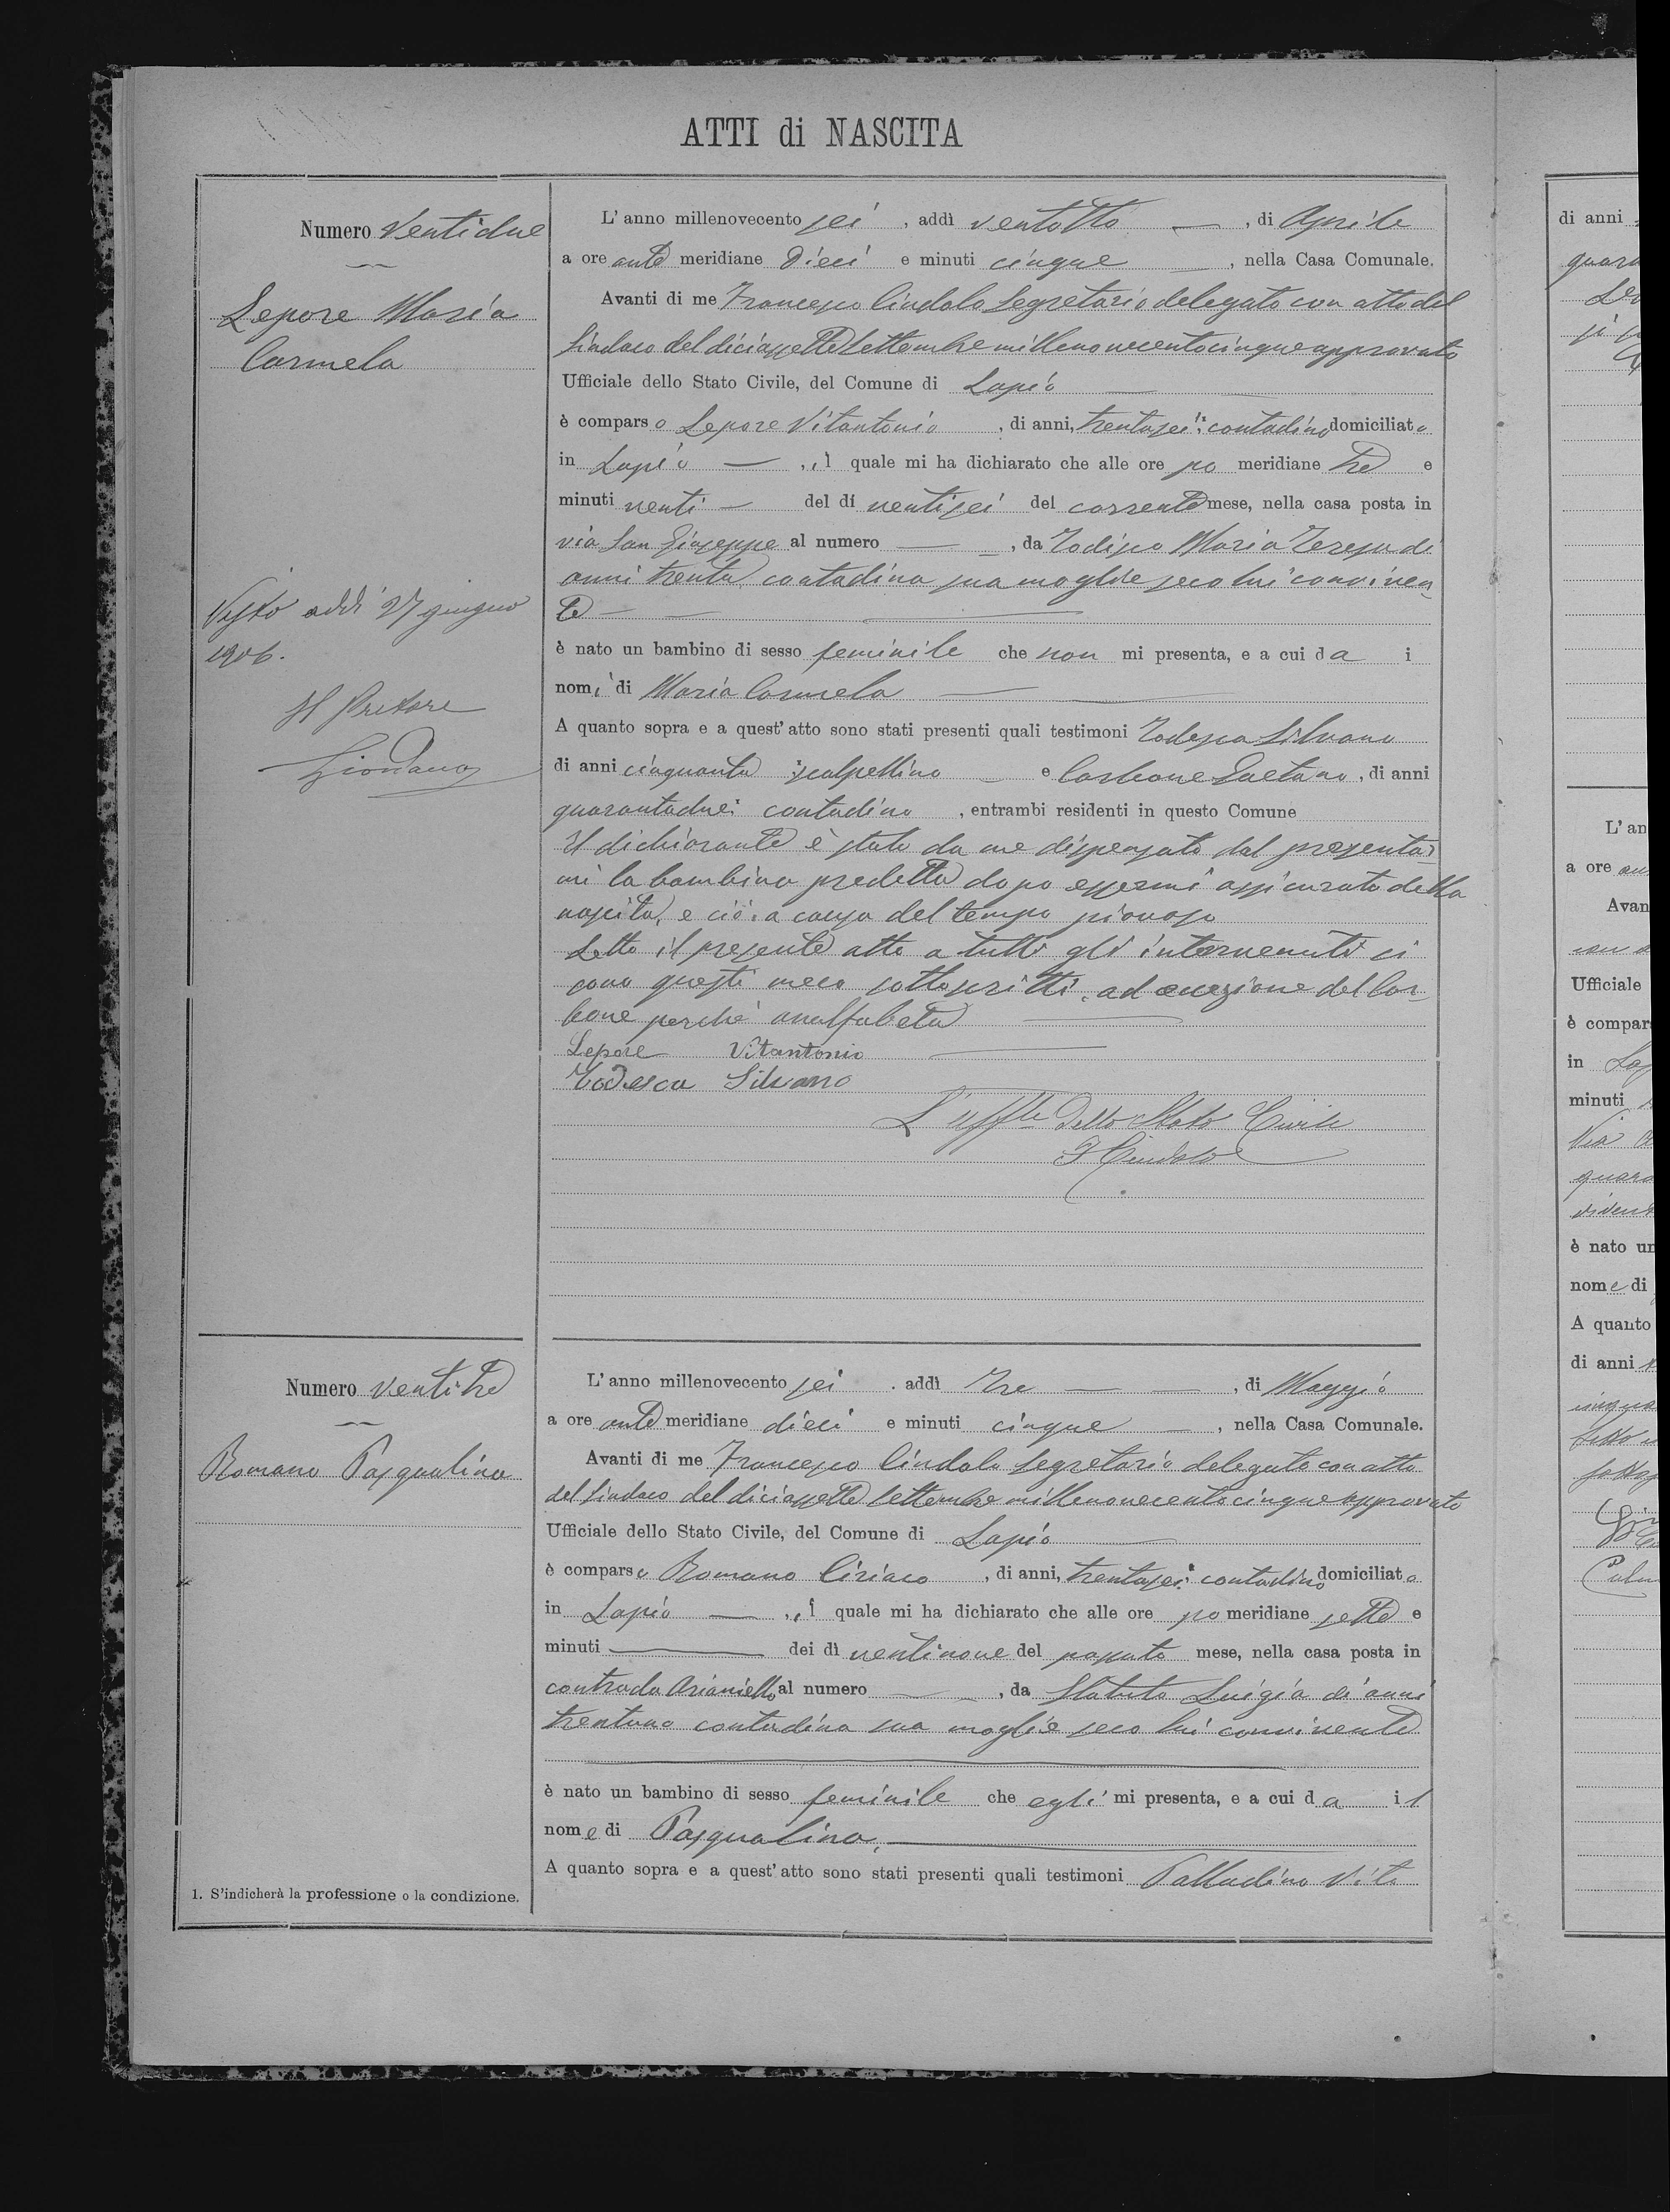 ATTI di NASCITA
Numero Ventidue
Lepore Maria
Carmela
Visto addì 27 giugno
1906.
Il Pretore
Giordano
L'anno millenovecento sei, addì ventotto —, di Aprile
a ore ante meridiane dieci e minuti cinque —, nella Casa Comunale.
Avanti di me Francesco Cindolo Segretario delegato con atto del
Sindaco del diciassette Settembre millenovecentocinque approvato
Ufficiale dello Stato Civile, del Comune di Lapio —
è comparso Lepore Vitantonio, di anni, trentasei; contadino domiciliato
in Lapio —, il quale mi ha dichiarato che alle ore po meridiane tre e
minuti venti — del dì ventisei del corrente mese, nella casa posta in
via San Giuseppe al numero — , da Todisco Maria Teresa di
anni trenta contadina sua moglie seco lui conviven-
te —
è nato un bambino di sesso feminile che non mi presenta, e a cui da i
nomi di Maria Carmela —
A quanto sopra e a quest'atto sono stati presenti quali testimoni Todesca Silvano
di anni cinquanta scalpellino — e Carbone Gaetano, di anni
quarantadue; contadino, entrambi residenti in questo Comune
Il dichiarante è stato da me dispensato dal presentar
mi la bambina predetta dopo essermi assicurato della
nascita, e ciò: a causa del tempo piovoso
Letto il presente atto a tutti gli intervenuti si
sono questi meco sottoscritti, ad eccezione del Car-
bone perchè analfabeta —
Lepore Vitantonio —
Todesca Silvano
L'uffle dello Stato Civile
F Cindolo
Numero ventitre
Romano Pasqualina
L'anno millenovecento sei. addì tre — —, di Maggio
a ore ante meridiane dieci e minuti cinque —, nella Casa Comunale.
Avanti di me Francesco Cindolo Segretario delegato con atto
del Sindaco del diciassette Settembre millenovecentocinque approvato
Ufficiale dello Stato Civile, del Comune di Lapio —
è comparso Romano Ciriaco, di anni, trentasei; contadino domiciliato
in Lapio —, il quale mi ha dichiarato che alle ore po meridiane sette e
minuti — dei dì ventinove del passato mese, nella casa posta in
contrada Arianiello al numero — , da Statuto Luigia di anni
trentuno contadina sua moglie seco lui convivente
è nato un bambino di sesso feminile che egli mi presenta, e a cui da il
nome di Pasqualina, —
A quanto sopra e a quest'atto sono stati presenti quali testimoni Palladino Vito
1. S'indicherà la professione o la condizione.
di anni
L'an
a ore
Avan
Ufficiale
è compar
in Lap
minuti
Via
è nato un
nome di
A quanto
di anni